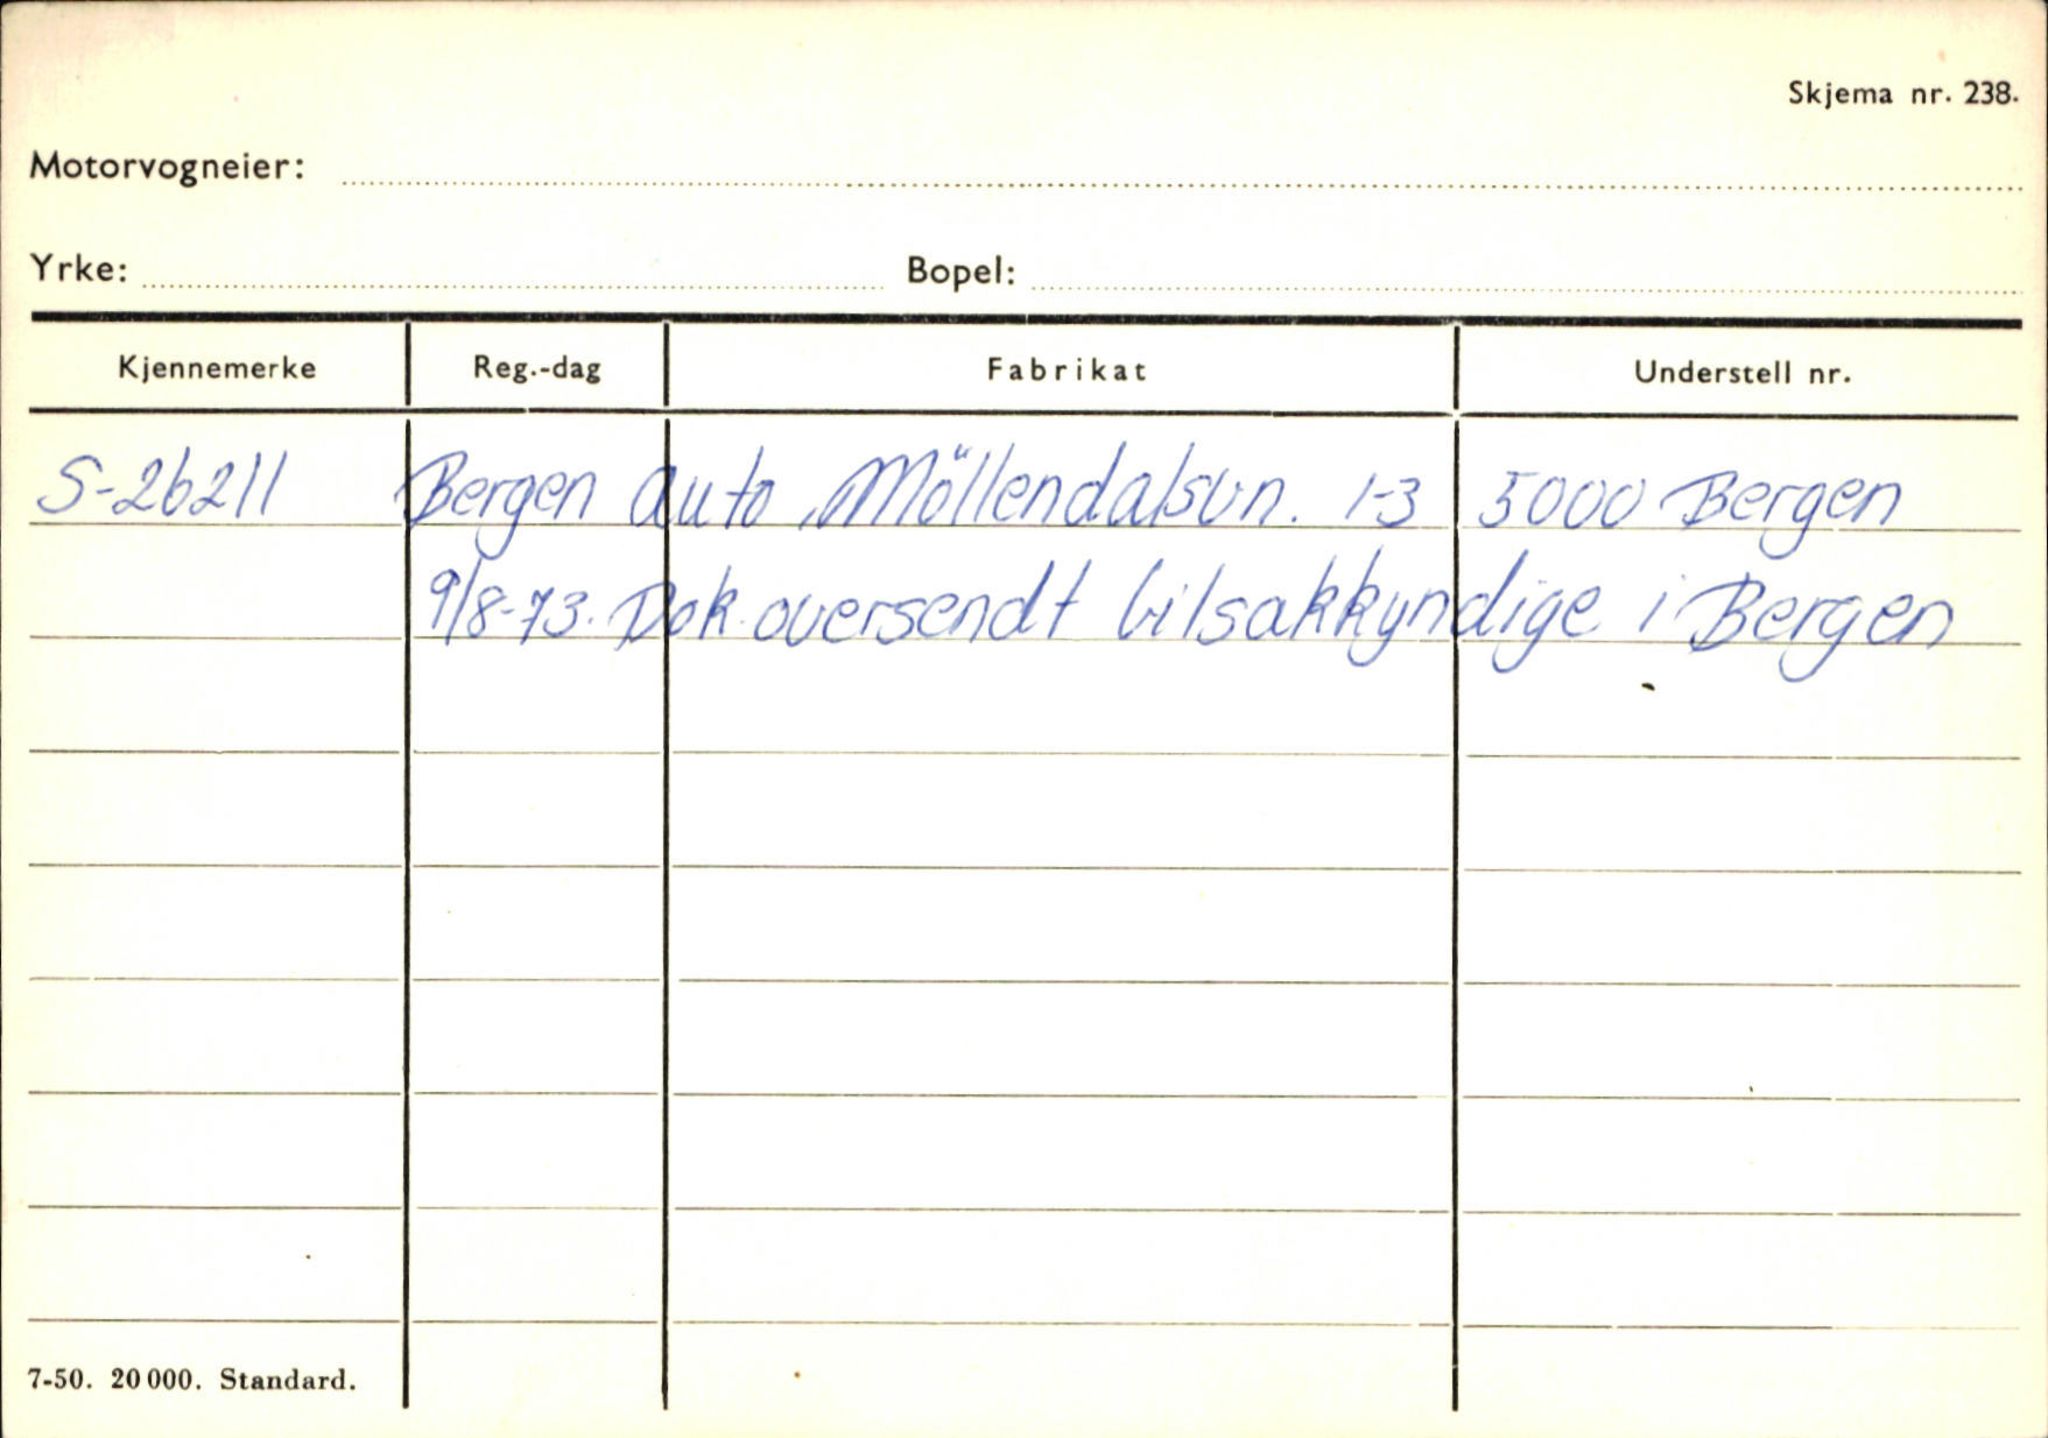 Skjema nr. 238.
Motorvogneier:
Yrke: Bopel:
Kjennemerke Reg.-dag Fabrikat Understell nr.
S-26211 Bergen auto, Möllendalsvn. 1-3 5000 Bergen
9/8-73. Dok. oversendt bilsakkyndige i Bergen
7-50. 20 000. Standard.